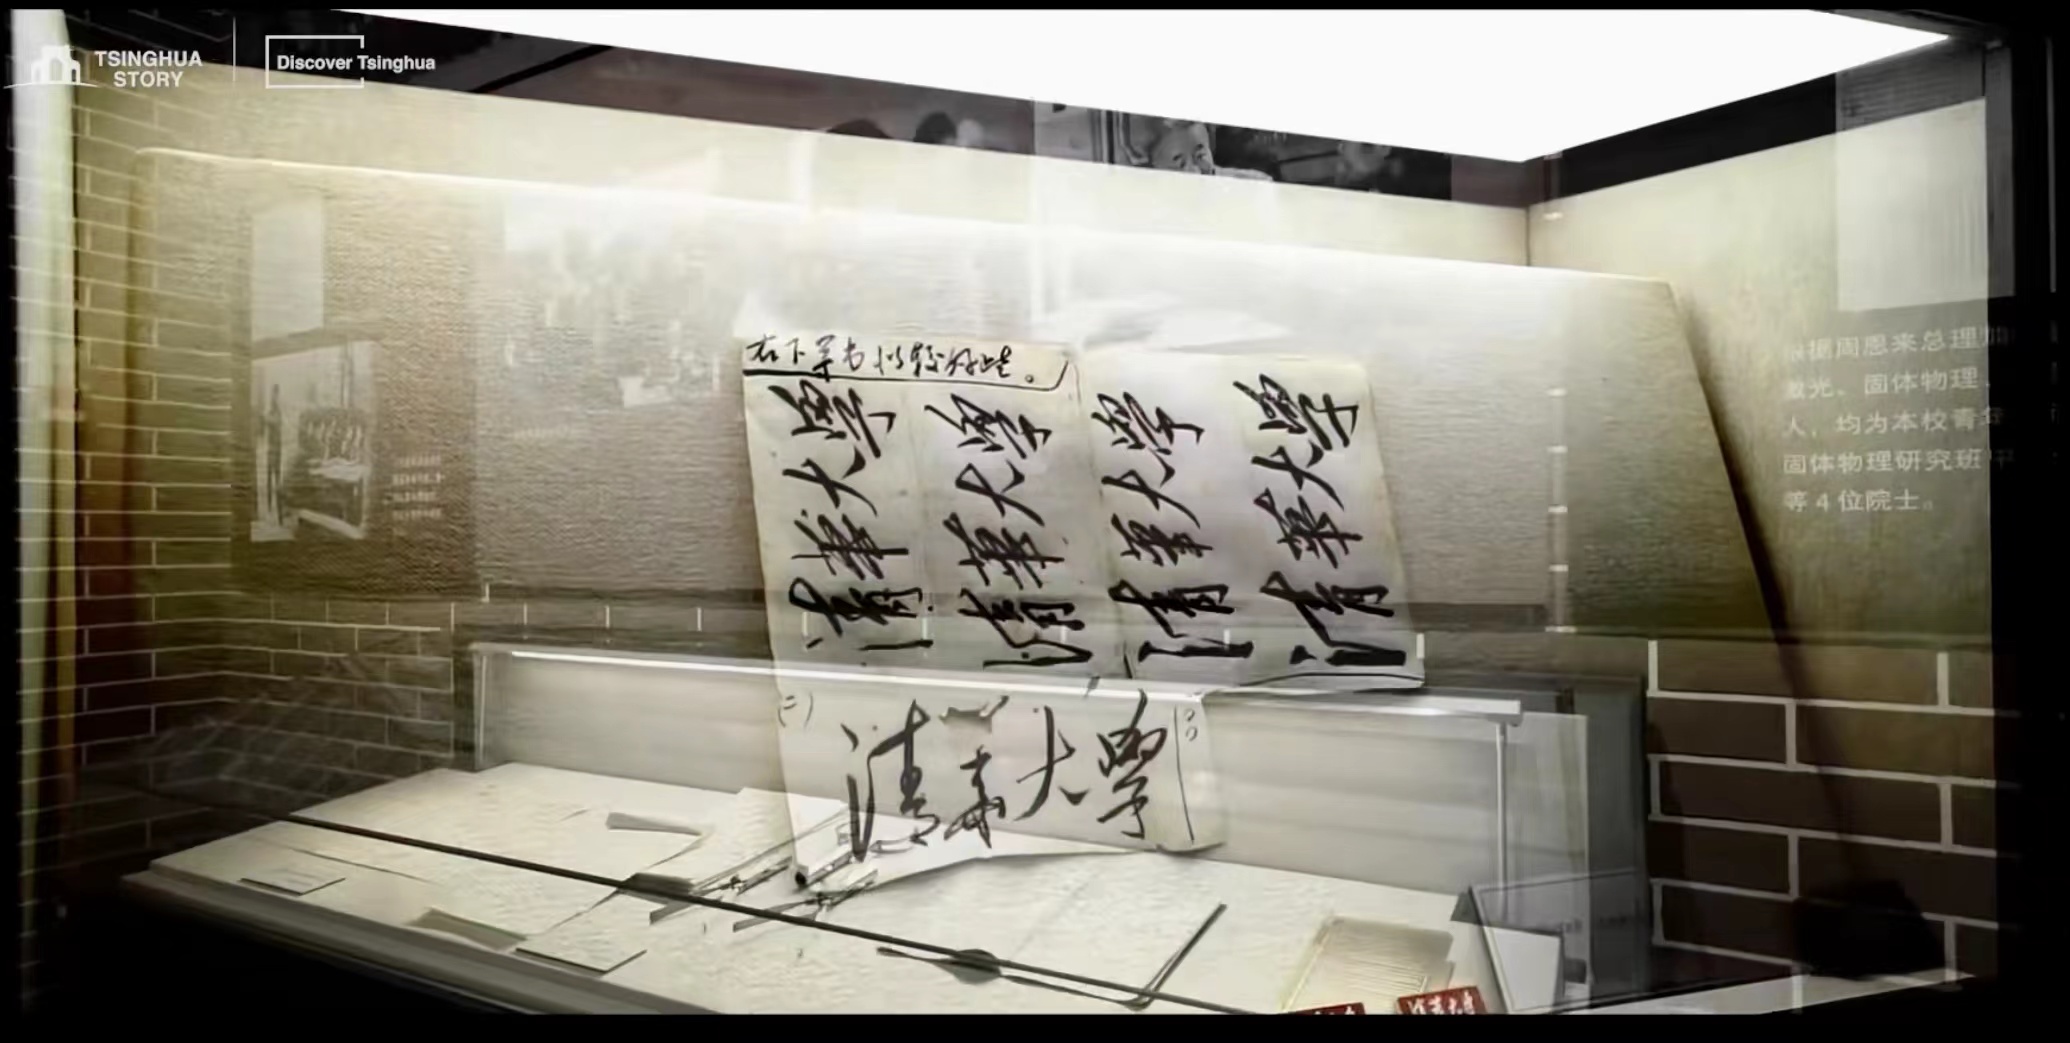 TSINGHUA
STORY
Discover Tsinghua
右下草书似较好些。
清華大學
清華大學
清華大學
清華大學
(二)
清華大學
根据周恩来总理
激光、固体物理、
人，均为本校青年
固体物理研究班
等4位院士。
清華大學